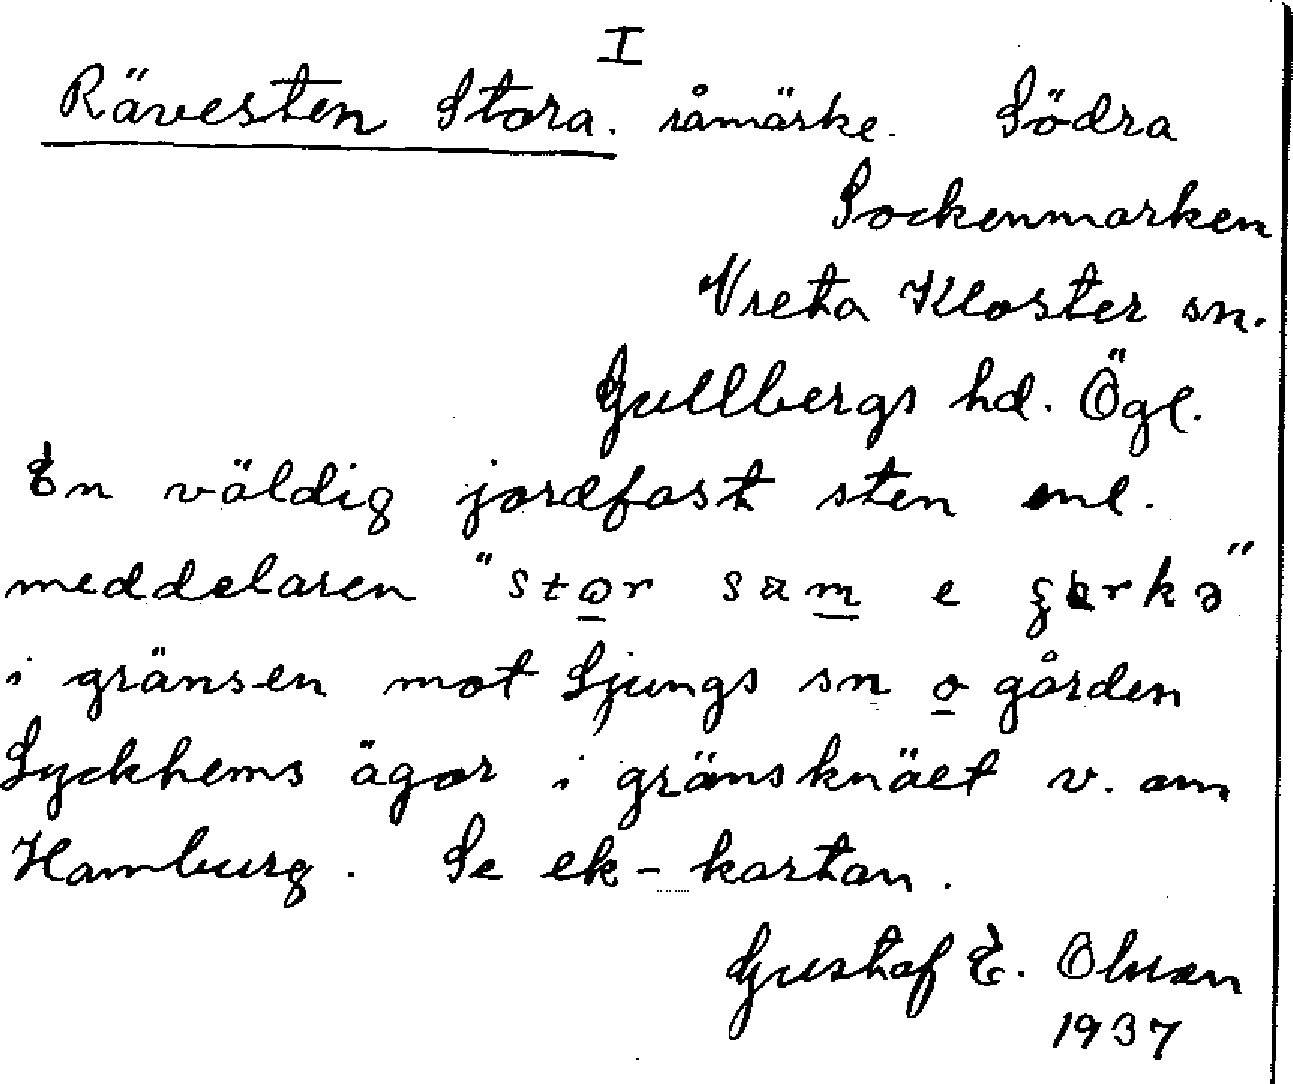 I
Rävesten Stora. råmärke. Södra
Sockenmarken
Vreta Kloster sn.
Gullbergs hd. Ögl.
En väldig jordfast sten enl.
meddelaren "stor sam e
i gränsen mot Ljungs sn o gården
Lyckhems ägor i gränsknäet v. om
Hamburg. Se ek-kartan.
Gustaf E. Olsson
1937